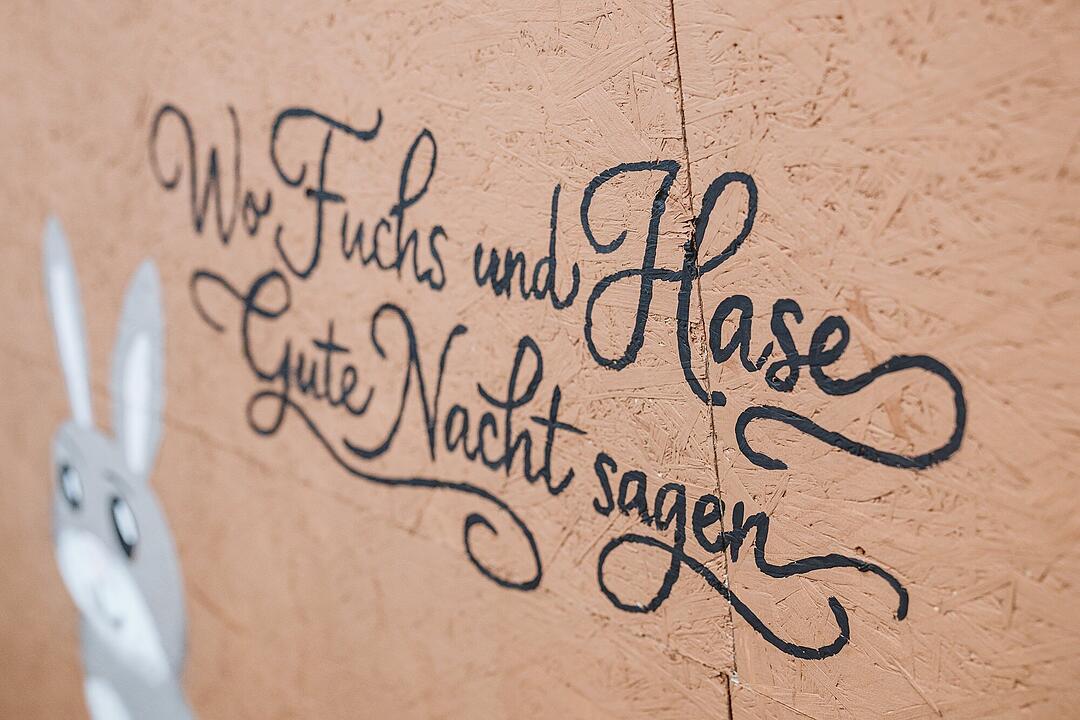 Wo Fuchs und Hase
Gute Nacht sagen